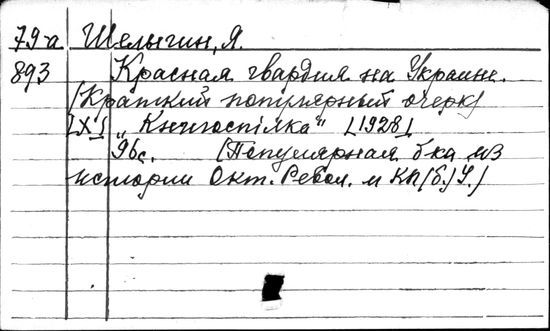 79-а Шелыгин, Я.
893 Красная гвардия на Украине.
(Краткий популярный очерк)
[Х.] „Книгоспілка“ [1928]
96с. (Популярная б-ка из
истории Окт. Револ. и КП(б.)У.)